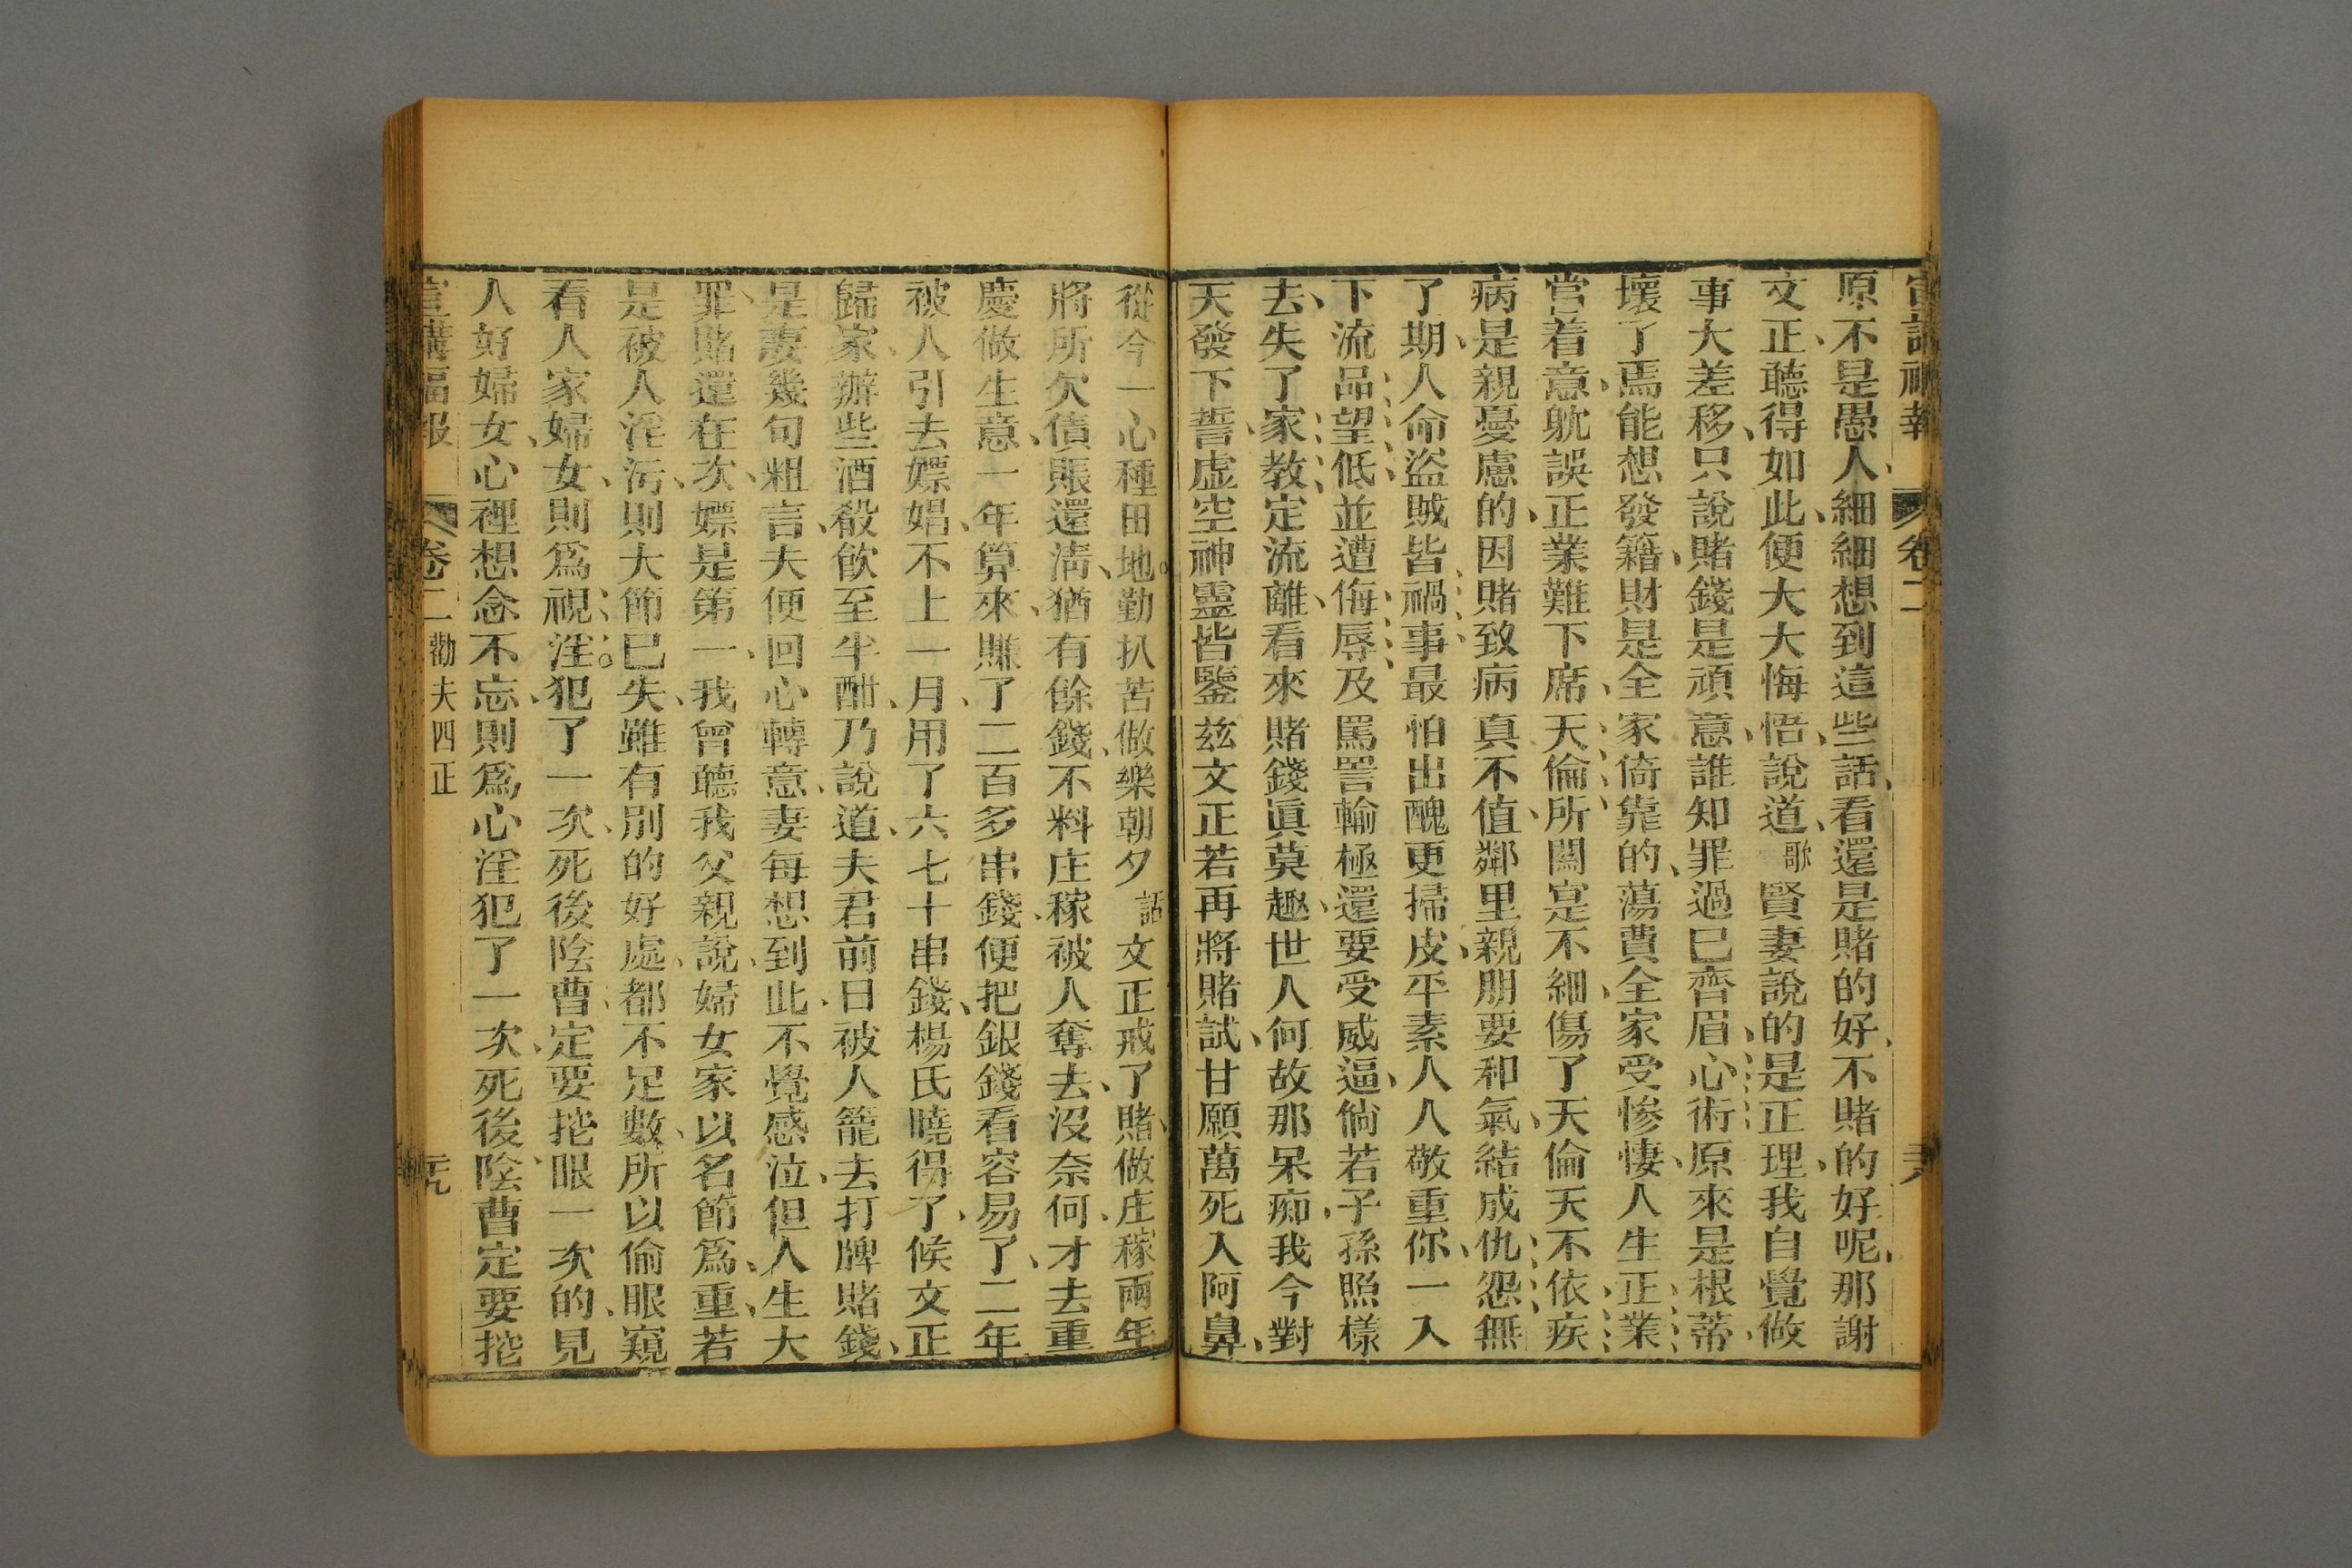 卷二
原不是愚人細細想到這些話看還是賭的好不賭的好呢那謝
文正聽得如此便大大悔悟說道歌賢妻說的是正理我自覺做
事大差移只說賭錢是頑意誰知罪過已齊眉心術原來是根蒂
壞了焉能想發籍財是全家倚靠的蕩費全家受慘悽人生正業
當着意躭誤正業難下席天倫所關寔不細傷了天倫天不依疾
病是親憂慮的因賭致病真不值鄰里親朋要和氣結成仇怨無
了期人命盜賊皆禍事最怕出醜更掃皮平素人人敬重你一入
下流品望低並遭侮辱及罵詈輸極還要受威逼倘若子孫照樣
去失了家教定流離看來賭錢眞莫趣世人何故那呆痴我今對
天發下誓虛空神靈皆鑒兹文正若再將賭試甘願萬死入阿鼻
從今一心種田地勤扒苦做樂朝夕話文正戒了賭做庄稼兩年
將所欠債賬還淸猶有餘錢不料庄稼被人奪去沒奈何才去重
慶做生意一年算來賺了二百多串錢便把銀錢看容易了二年
被人引去嫖娼不上一月用了六七十串錢楊氏曉得了候文正
歸家辦些酒殽飲至半酣乃說道夫君前日被人籠去打牌賭錢
是妻幾句粗言夫便回心轉意妻每想到此不覺感泣但人生大
罪賭還在次嫖是第一我曾聽我父親說婦女家以名節爲重若
是被人淫污則大節已失雖有別的好處都不足數所以偷眼窺
看人家婦女則爲視淫犯了一次死後陰曹定要挖眼一次的見
人好婦女心裡想念不忘則爲心淫犯了一次死後陰曹定要挖
宣講福報 卷二 勸夫四正 元